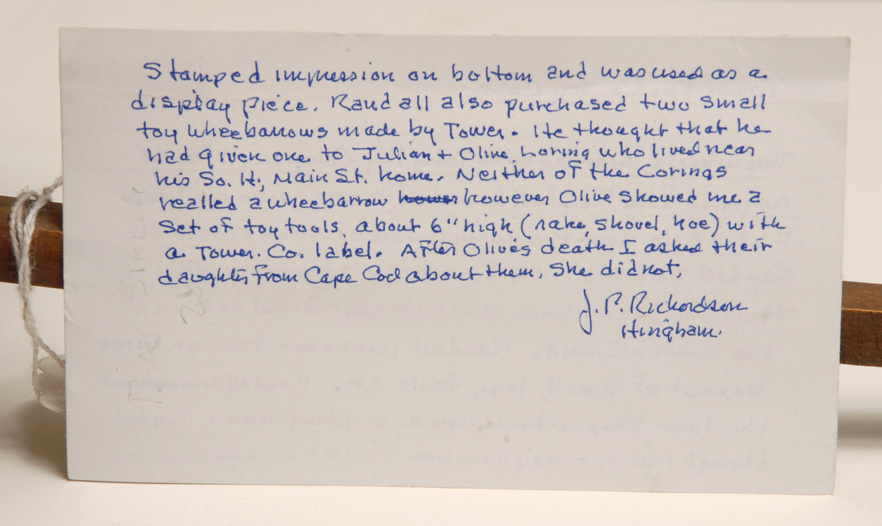 Stamped impression on bottom and was used as a
display piece. Randall also purchased two small
toy wheebarrows made by Tower. He thought that he
had given one to Julian + Olive Loring who lived near
his So. H, Main St. home. Neither of the Lorings
realled a wheebarrow however Olive showed me a
set of toy tools, about 6" high (rake, shovel, hoe) with
a Tower. Co. label. After Olive's death I asked their
daughter from Cape Cod about them. She did not.
J. P. Richardson
Hingham.